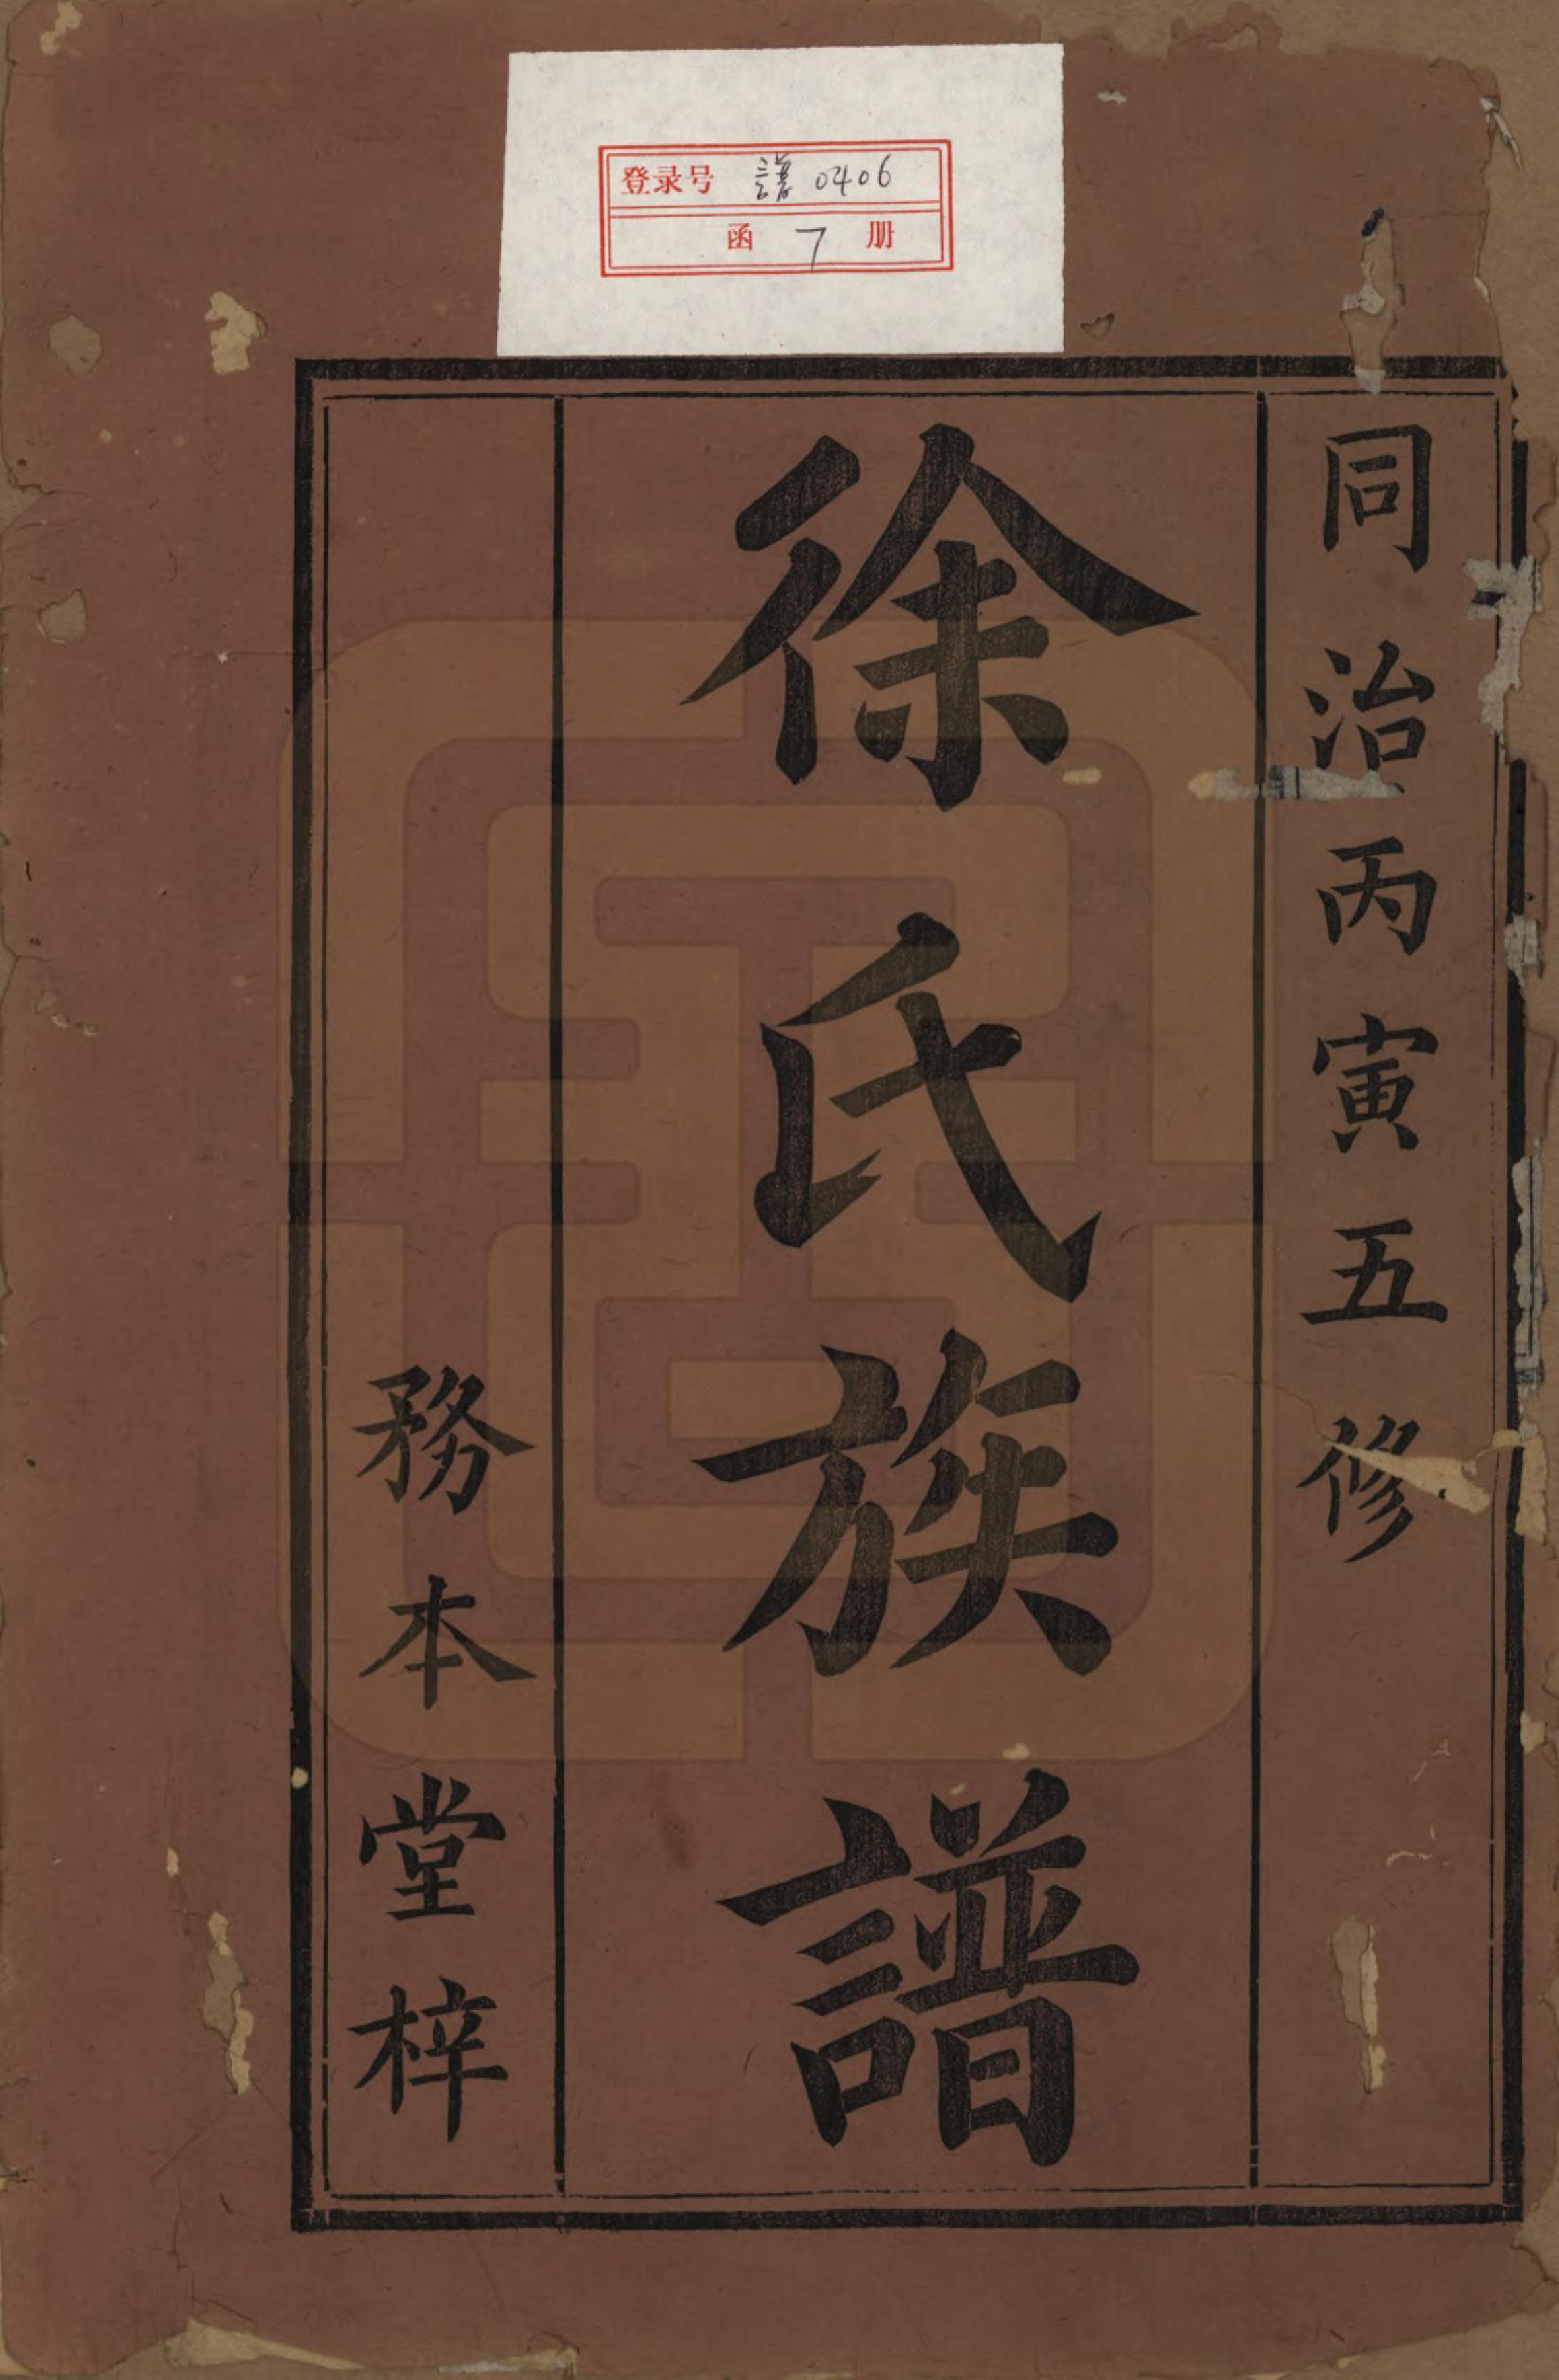 登录号 譜0406
函 7 册
同治丙寅五修
徐氏族譜
務本堂梓